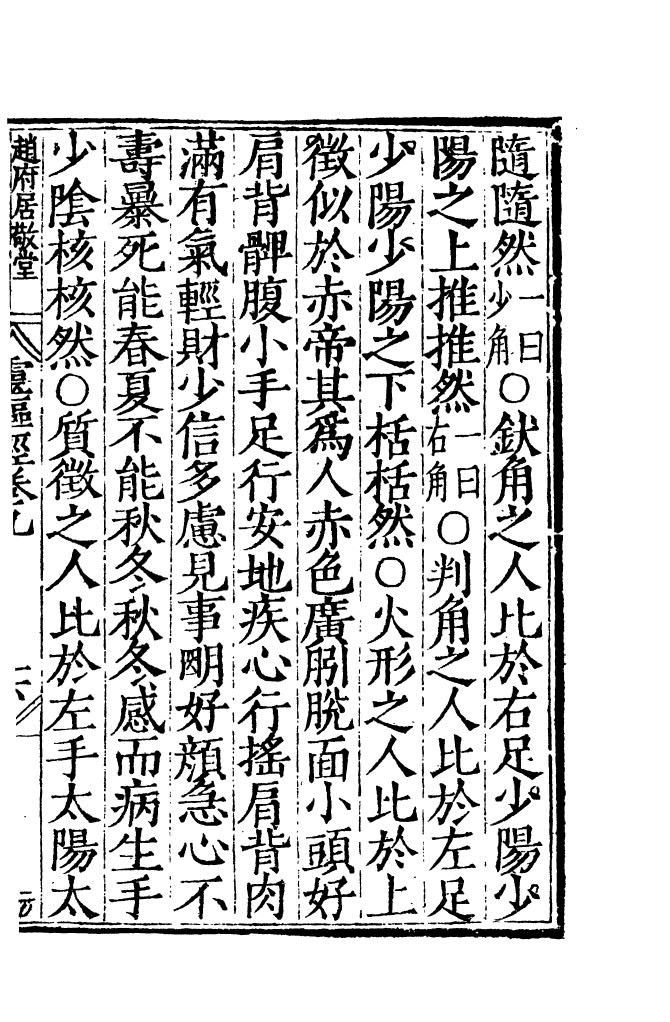 隨隨然一曰少角○釱角之人比於右足少陽少
陽之上推推然一曰右角○判角之人比於左足
少陽少陽之下栝栝然○火形之人比於上
徵似於赤帝其爲人赤色廣䏖脫面小頭好
肩背髀腹小手足行安地疾心行搖肩背肉
滿有氣輕財少信多慮見事明好顔急心不
壽暴死能春夏不能秋冬秋冬感而病生手
少陰核核然○質徵之人比於左手太陽太
趙府居敬堂
靈樞經卷九